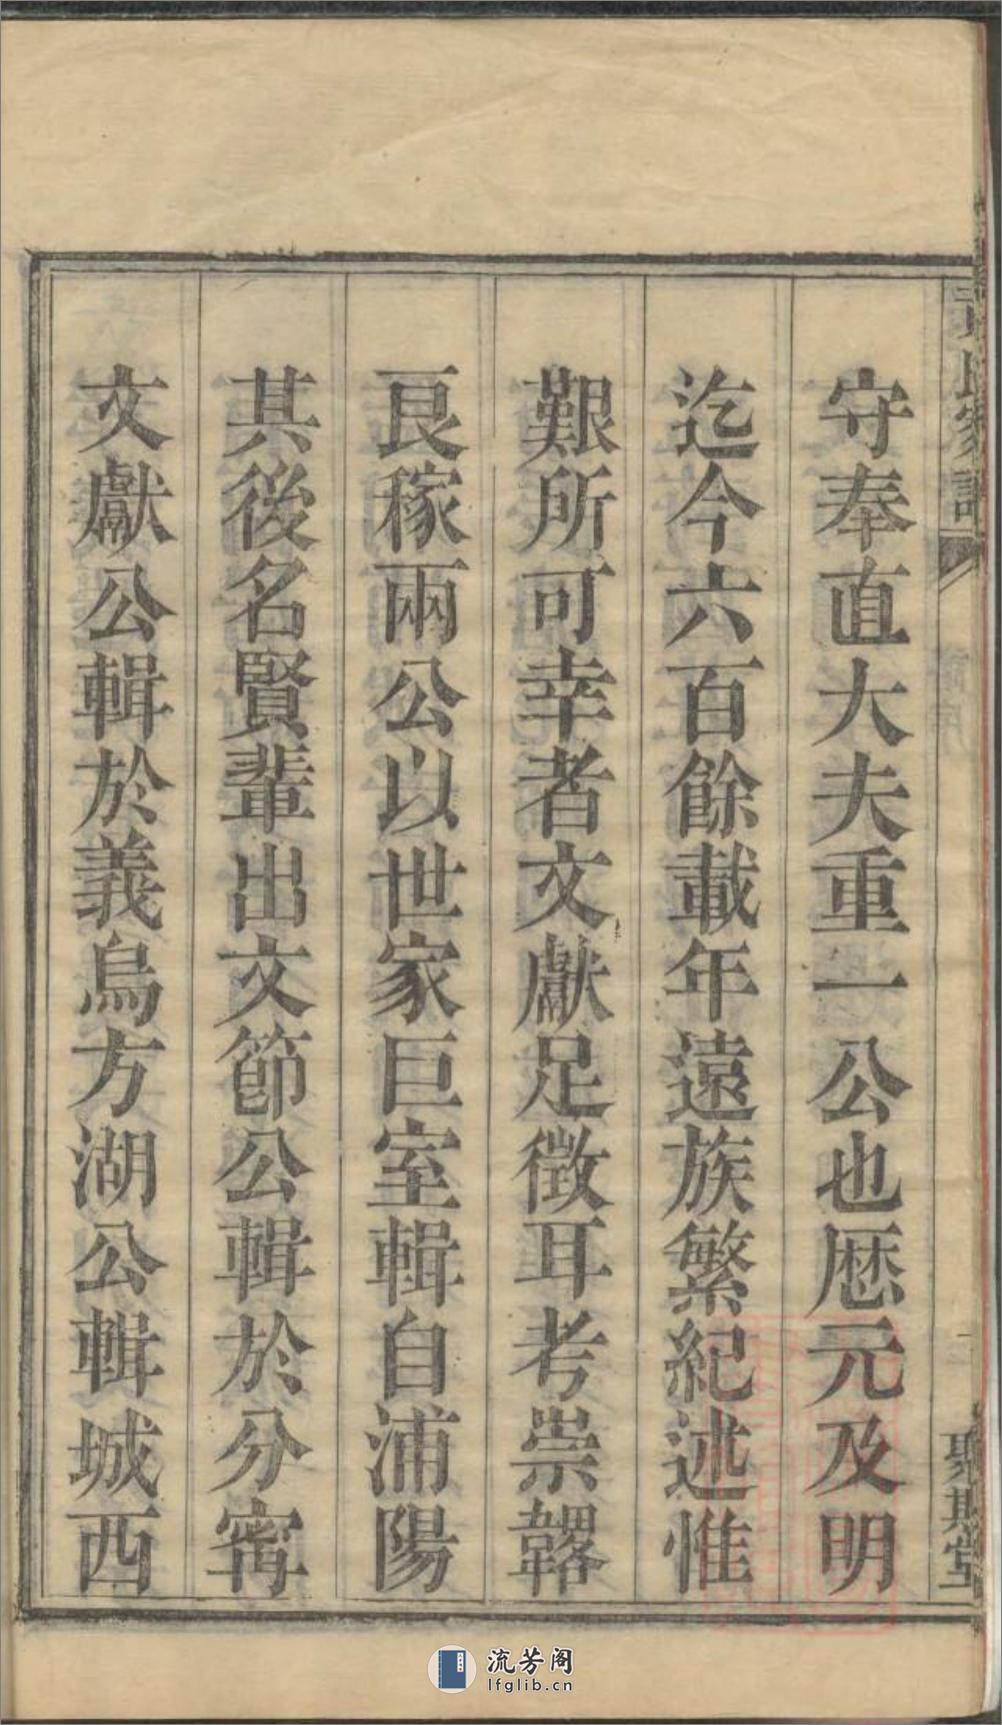 守奉直大夫重一公也厯元及明
迄今六百餘載年遠族繁紀述惟
艱所可幸者文獻足徵耳考崇韜
良稼兩公以世家巨室輯自浦陽
其後名賢輩出文節公輯於分甯
文獻公輯於義烏方湖公輯城西
流芳阁
lfglib.cn